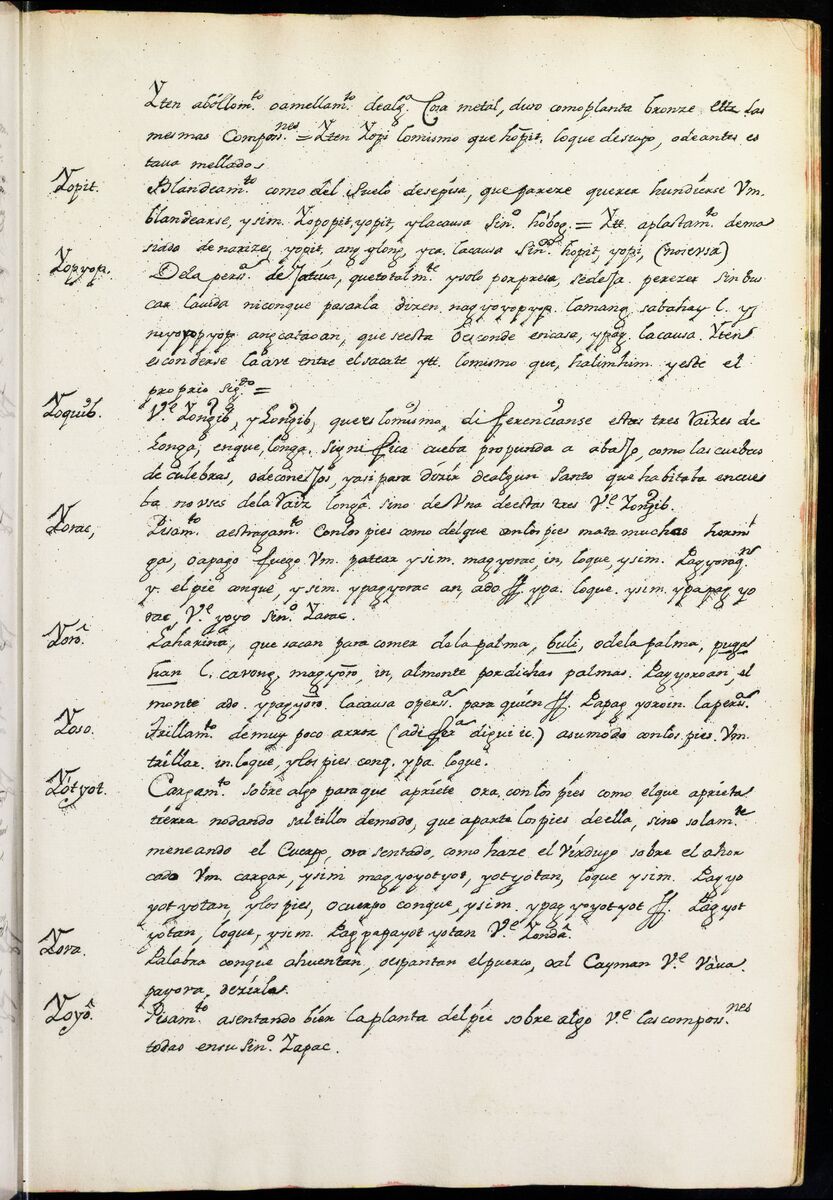 Yten abollom.to o amellam.to de alg.a Cosa metal, duro como planta bronze ettz. las
mesmas Compos.nes = Yten Yopi lo mismo que hopit. lo que des cupo, o de antes es
tava mellado.
Yopit. Blandeam.to como del Suelo de sepisa, que pareze querer hundirse Vm.
blandearse, y sim. Yopopit, yopit, y la causa Sin.o hobog. = Ytt. aplastam.to dema
siado de narizes, yopit, ang ylong, yca. la causa Sin.o hopit, yopi,
Yopyop. De la pers.a que total m.te y solo por presa, se deja perezer sin bus
car la vida ni con que pasarla diren nag yoyopyop. lamang sa bahay l. yj
niyoyopyop ang cataoan, que se esta esconde en casa, y pag. la causa. Yten
esconderse la ave entre el sacate ytt. lo mismo que, halimhim y este el
proprio sig.do =
Yoquib. V.e Yongib, y Longib, que es lo mismo, diferencianse estas tres raizes de
Longa, en que, longa. significa cueba profunda a abajo, como las cuebas
de culebras, o de conejos, y asi para dezir de algun Santo que habitaba en cue
ba no uses de la raiz longa. sino de Una de estas tres V.e Yongib.
Yorac, Pisam.to a estragam.to Con los pies como del que con los pies mata muchas hormi
ga, o apago fuego Vm. patear y sim. mag yorac, in, lo que, y sim. Pag yoraq.n
y. el pie con que, y sim. ypag yorac an, ado ff. ypa. lo que. y sim. ypapag yo
rac, V.e yoyo Sin.o Yarac.
Yoro. La harina, que sacan para comer de la palma, buli, o de la palma, puga
han l. cavong, mag yoro, in, al monte por dichas palmas. Pag yoroan, el
monte ado. ypag yoro. la causa o pers.a para quien ff. Papag yoroin. la pers.a
Yoso. Trillam.to de muy poco arroz (a difer.a digui ic.) a su modo con los pies. Vm.
trillar. in. lo que, y los pies conq. ypa. lo que.
Yotyot. Cargam.to sobre algo para que apriete ora con los pies como el que aprieta
tierra no dando saltillos de modo, que aparte los pies de ella, sino solam.te
meneando el Cuerpo, ora sentado, como haze el Verdugo sobre el ahor
cado Vm. cargar, y sim mag yoyotyot, yotyotan, lo que y sim. Pag yo
yotyotan, y los pies, o cuerpo con que, y sim. ypag yoyotyot ff. Pag yot
yotan, lo que, y sim. Pag papayot yotan V.e Yonda.
Yova. Palabra con que ahuentan, o espantan el puerco, o al Cayman V.e Vaua.
payova, dezirla.
Yoyo. Pisam.to asentando bien la planta del pie sobre algo V.e las compos.nes
todas en su Sin.o Yapac.